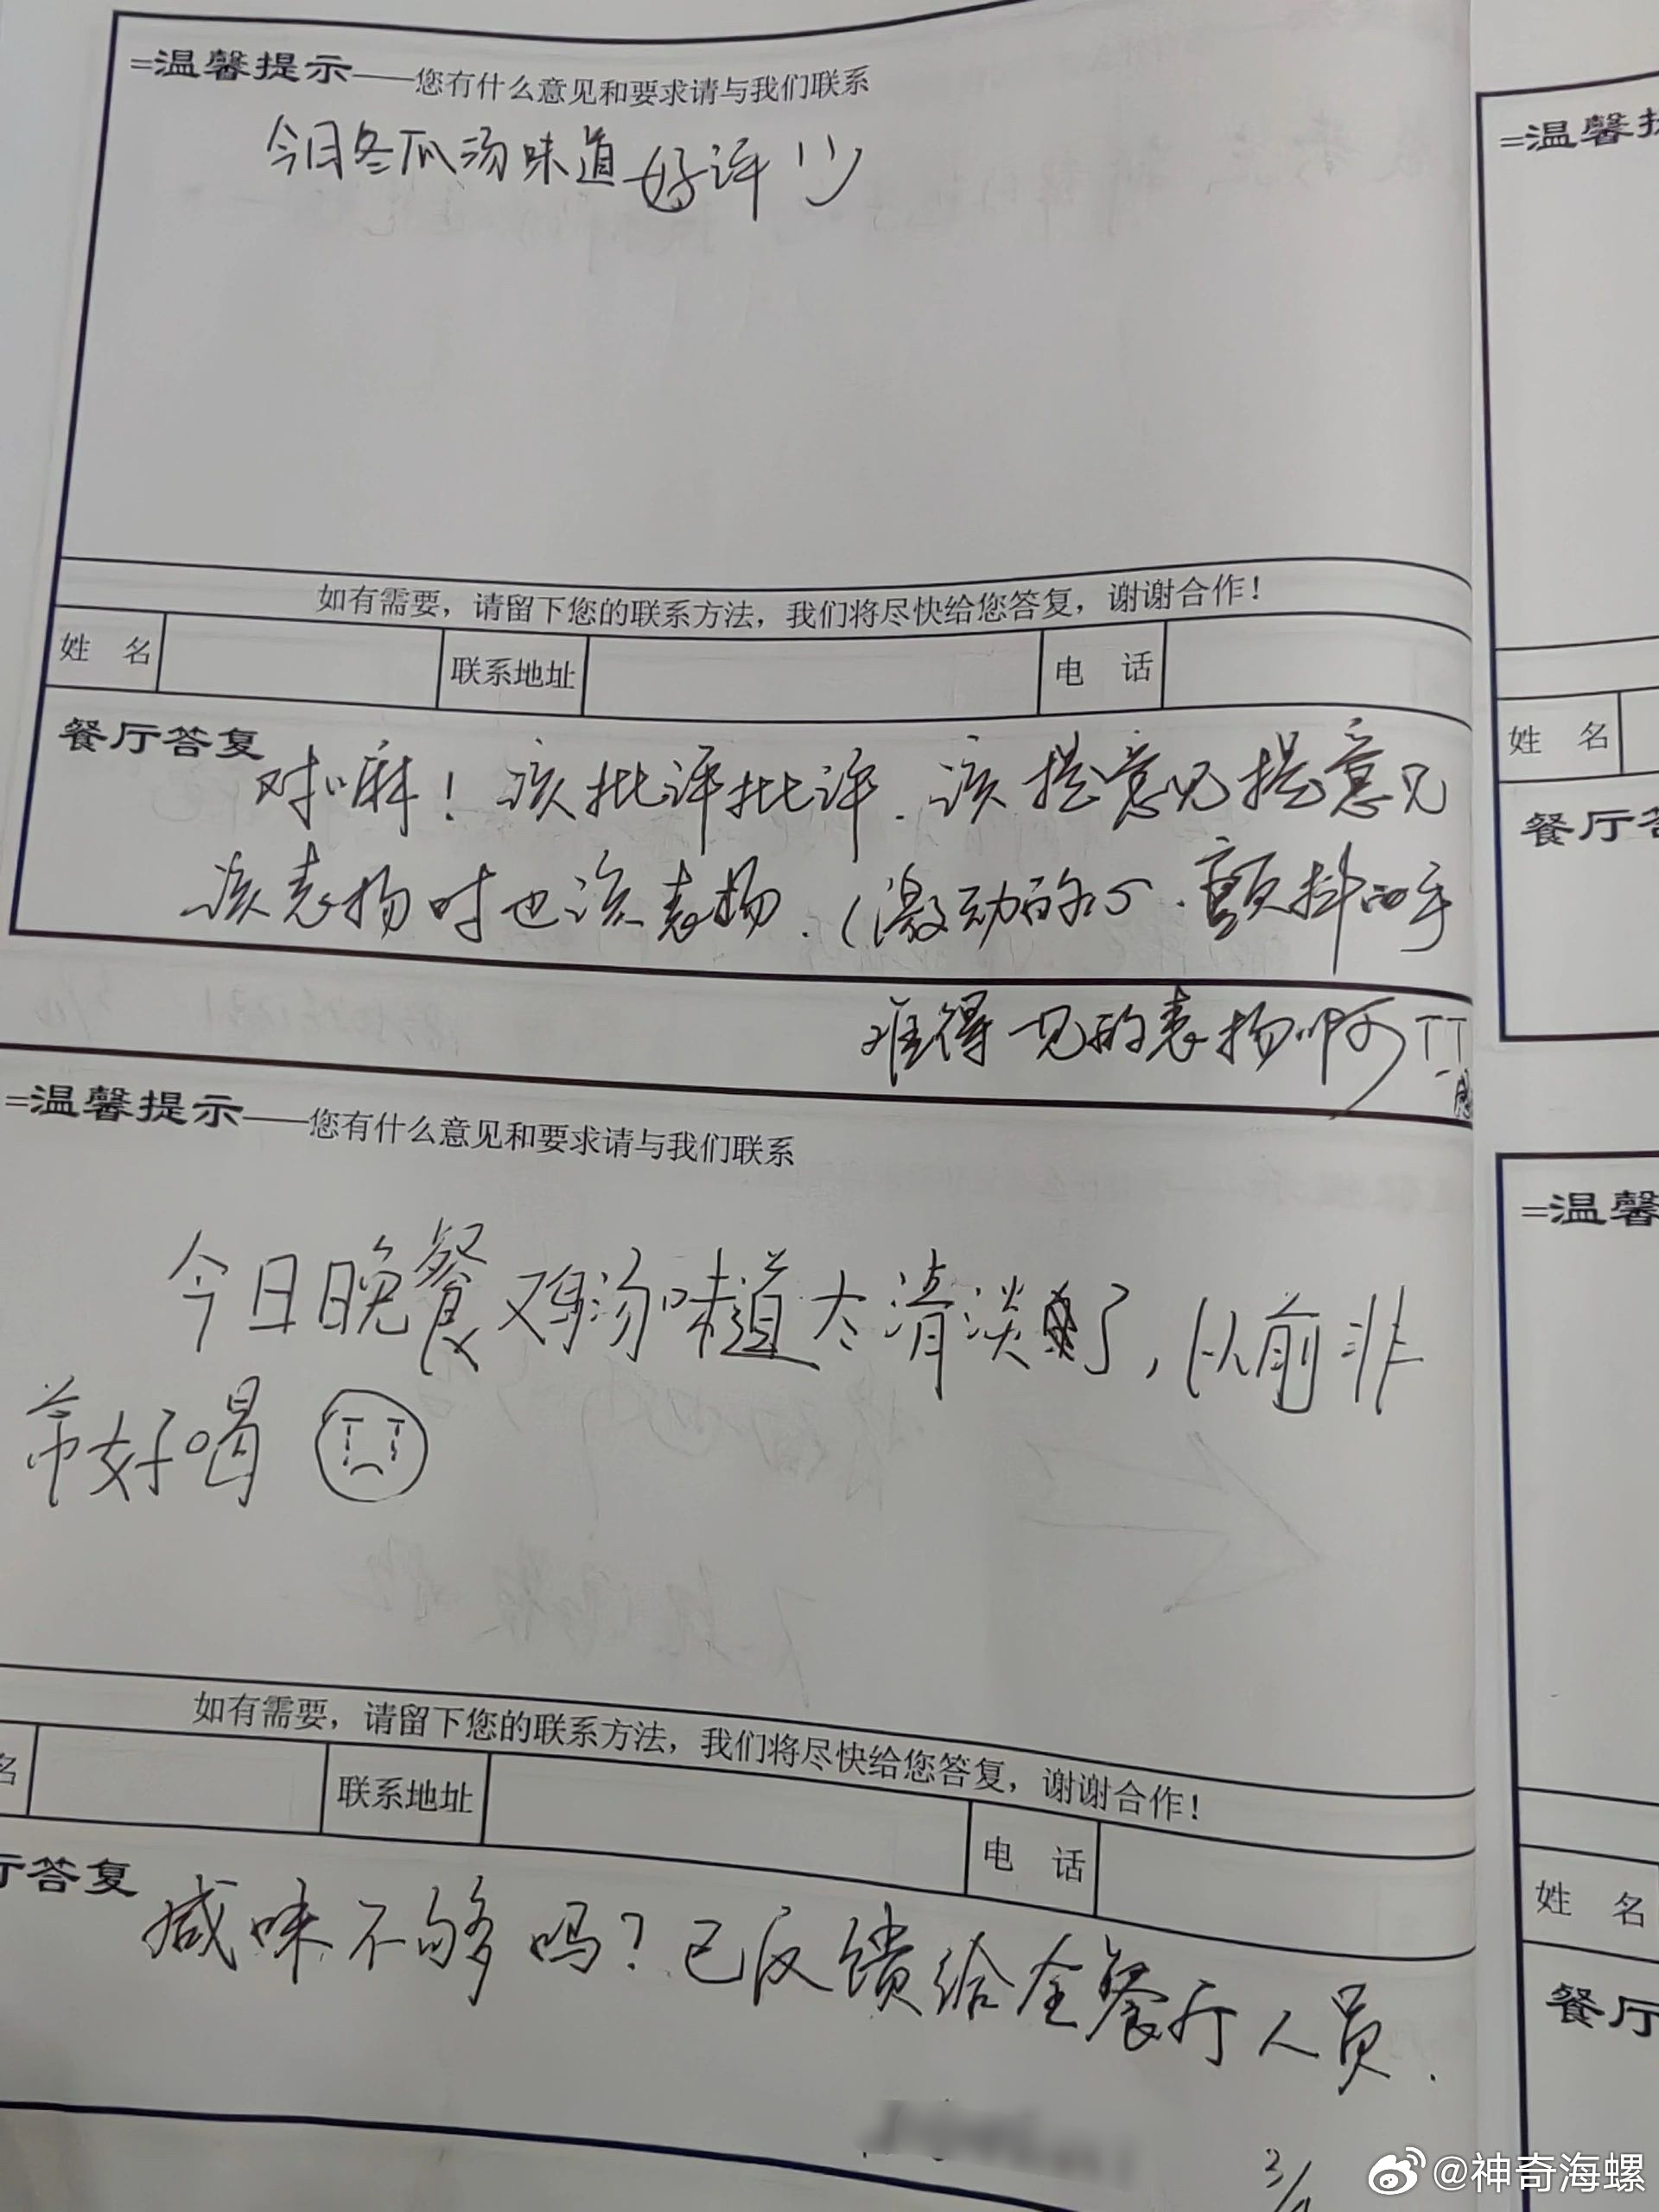 =温馨提示——您有什么意见和要求请与我们联系
今日冬瓜汤味道好评!!)
如有需要，请留下您的联系方法，我们将尽快给您答复，谢谢合作！
姓 名
联系地址
电 话
餐厅答复
对嘛！该批评批评.该提意见提意见
该表扬时也该表扬.(激动的心.颤抖的手
难得一见的表扬啊TT
=温馨提示——您有什么意见和要求请与我们联系
今日晚餐鸡汤味道太清淡了，从前非
常好喝
如有需要，请留下您的联系方法，我们将尽快给您答复，谢谢合作！
名
联系地址
电 话
厅答复
咸味不够吗？已反馈给全餐厅人员.
=温馨
姓 名
餐厅答
=温馨
姓 名
餐厅
@神奇海螺